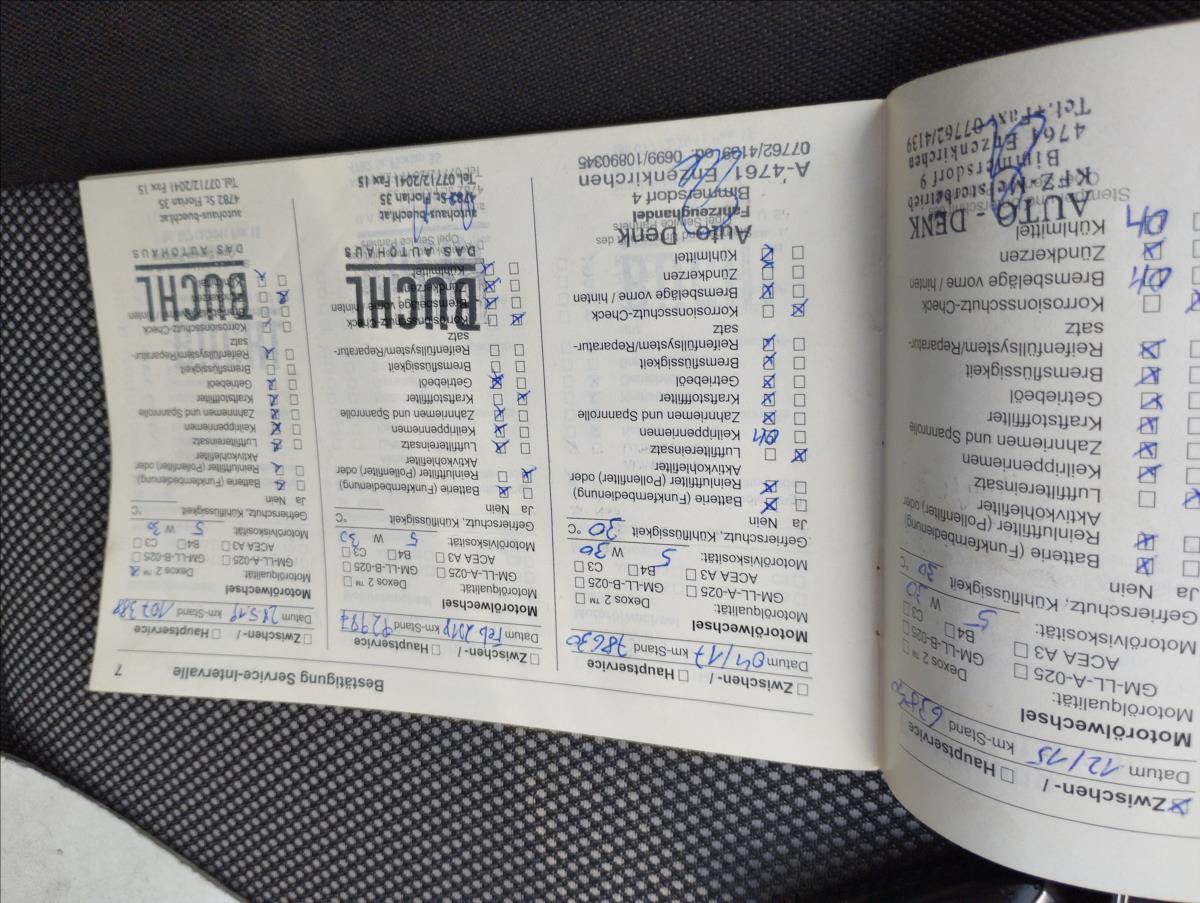 Zwischen- /
Hauptservice
Datum 12/15 km-Stand
Motorölwechsel
Motorölqualität:
Dexos 2 ™
GM-LL-A-025
GM-LL-B-025
ACEA A3
B4
C3
Motorölviskosität: 5 W 30
Gefrierschutz, Kühlflüssigkeit 30 °C
Ja Nein
Batterie (Funkfernbedienung)
Reinluftfilter (Pollenfilter) oder
Aktivkohlefilter
Luftfiltereinsatz
Keilrippenriemen
Zahnriemen und Spannrolle
Kraftstofffilter
Getriebeöl
Bremsflüssigkeit
Reifenfüllsystem/Reparatur-
satz
Korrosionsschutz-Check
Bremsbeläge vorne / hinten
Zündkerzen
Kühlmittel
AUTO - DENK
KFZ-Meisterbetrieb
Bimmersdorf 9
4761 Enzenkirchen
Tel.+Fax: 07762/4139
Bestätigung Service-Intervalle 7
Zwischen- / Hauptservice
Datum 04/17 km-Stand 78630
Motorölwechsel
Motorölqualität: Dexos 2 ™
GM-LL-A-025 GM-LL-B-025
ACEA A3 B4 C3
Motorölviskosität: 5 W 30
Gefrierschutz, Kühlflüssigkeit 30 °C
Ja Nein
Batterie (Funkfernbedienung)
Reinluftfilter (Pollenfilter) oder
Aktivkohlefilter
Luftfiltereinsatz
Keilrippenriemen
Zahnriemen und Spannrolle
Kraftstofffilter
Getriebeöl
Bremsflüssigkeit
Reifenfüllsystem/Reparatur-
satz
Korrosionsschutz-Check
Bremsbeläge vorne / hinten
Zündkerzen
Kühlmittel
Auto Denk
Fahrzeughandel
Bimmersdorf 4
A-4761 Enzenkirchen
07762/4139 od. 0699/10890345
Zwischen- / Hauptservice
Datum Feb 2018 km-Stand 92997
Motorölwechsel
Motorölqualität: Dexos 2 ™
GM-LL-A-025 GM-LL-B-025
ACEA A3 B4 C3
Motorölviskosität: 5 W 30
Gefrierschutz, Kühlflüssigkeit °C
Ja Nein
Batterie (Funkfernbedienung)
Reinluftfilter (Pollenfilter) oder
Aktivkohlefilter
Luftfiltereinsatz
Keilrippenriemen
Zahnriemen und Spannrolle
Kraftstofffilter
Getriebeöl
Bremsflüssigkeit
Reifenfüllsystem/Reparatur-
satz
Korrosionsschutz-Check
Bremsbeläge vorne / hinten
Zündkerzen
Kühlmittel
BÜCHL
DAS AUTOHAUS
autohaus-buechl.at
4782 St. Florian 35
Tel. 07712/2041 Fax 15
Zwischen- / Hauptservice
Datum km-Stand
Motorölwechsel
Motorölqualität: Dexos 2 ™
GM-LL-A-025 GM-LL-B-025
ACEA A3 B4 C3
Motorölviskosität: 5 W 30
Gefrierschutz, Kühlflüssigkeit °C
Ja Nein
Batterie (Funkfernbedienung)
Reinluftfilter (Pollenfilter) oder
Aktivkohlefilter
Luftfiltereinsatz
Keilrippenriemen
Zahnriemen und Spannrolle
Kraftstofffilter
Getriebeöl
Bremsflüssigkeit
Reifenfüllsystem/Reparatur-
satz
Korrosionsschutz-Check
BÜCHL
DAS AUTOHAUS
autohaus-buechl.at
4782 St. Florian 35
Tel. 07712/2041 Fax 15